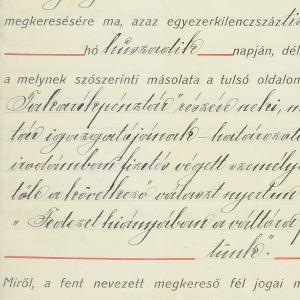 megkeresésére ma, azaz egyezerkilenczszáztiz
hó huszadik napján, dél
a melynek szószerinti másolata a tulsó oldalon
Takarékpénztár" részére neki, m
tár igazgatójának - határozato
irodámban fizetés végett személye
tőle a következő választ nyertem
" Fedezet hiányában a váltót a
tünk".
Miről, a fent nevezett megkereső fél jogai m